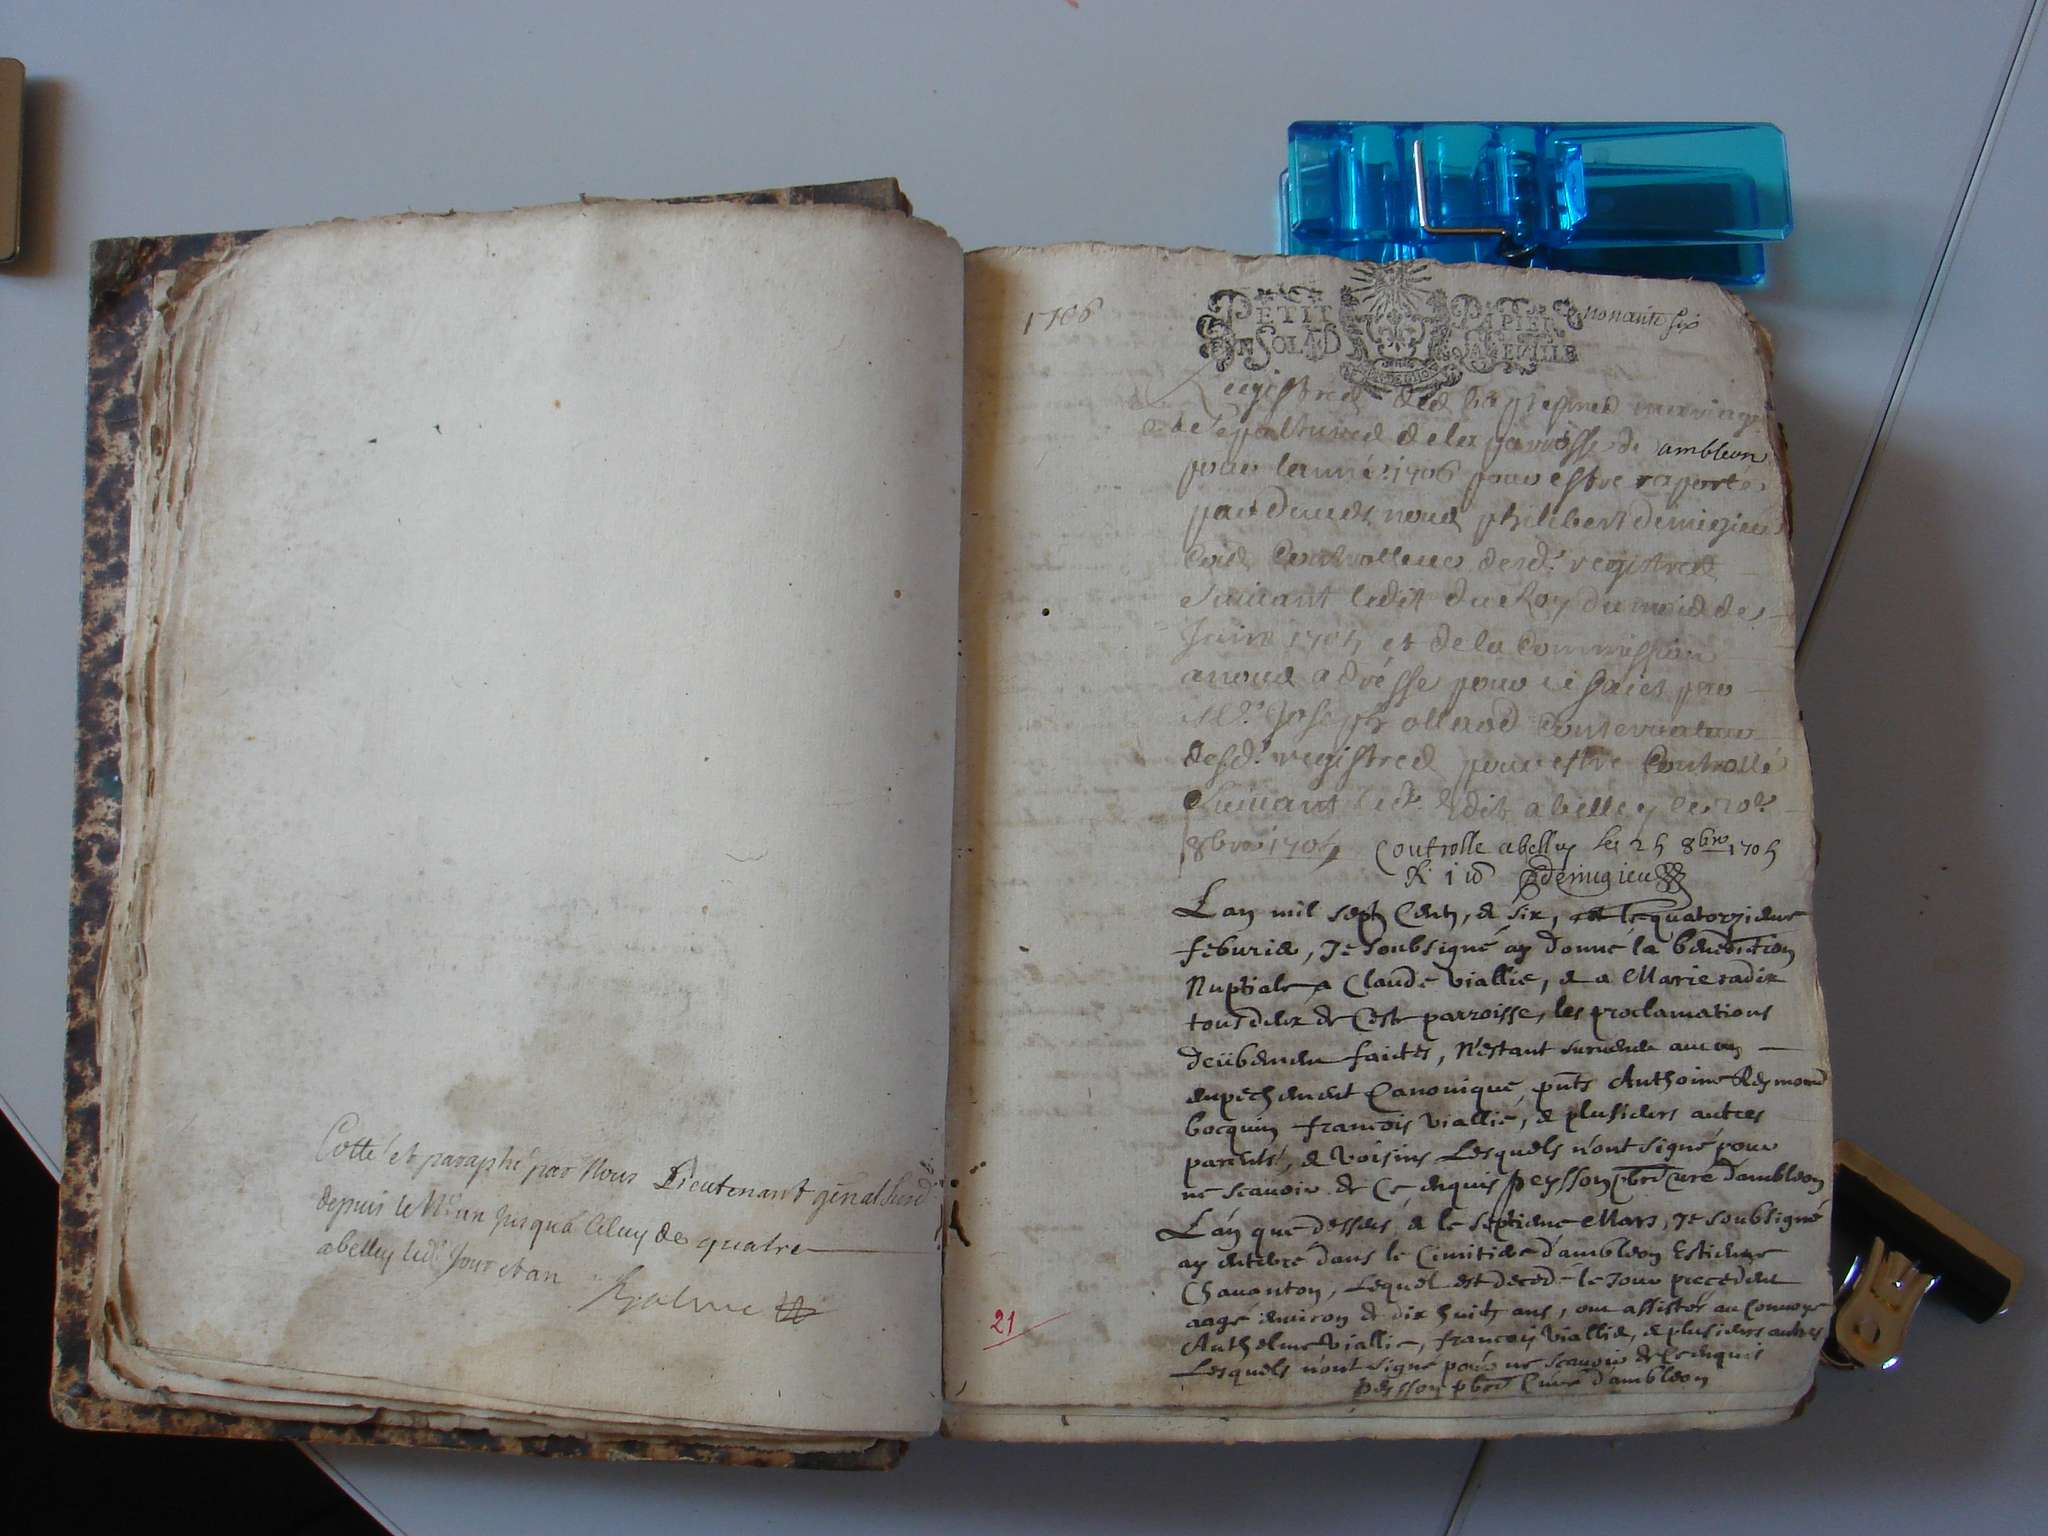 Cotté et paraphé par Nous Lieutenant
depuis le N.º un jusqua Celuy de quatre
abelley led.t Jour et an
1706
PETIT PAPIER
EN SOL A D
nonante six
Registres des baptesmes mariages
de Sepultures de la parroisse de ambleon
pour lannée 1706 pour estre raporté
nous philibert demigieu
Controlleur desd.s registres
Suiuant ledit du Roy du mois de
Juin 1705 et de la Commission
a nous adressé pour par
M.r Joseph
desd.s registres pour estre Controllé
Suiuant led.t Edit a belley le
8bre 1705 Controlle abelley le 25 8bre 1705
demigieu
Lan mil sept Cent, & six, et le quatorzieme
feburier, Je soubsigné ay donné la benediction
Nuptiale a Claude viallie, & a Marie radix
tous deux de Ceste parroisse, les proclamations
deüement faictes, N'estant suruenu aucun
empechement Canonique, pnts Anthoine Reymond
bocquin francois viallié, & plusieurs autres
parents, & voisins Lesquels n'ont signé pour
ne scauoir de Ce enquis peysson pbre Curé d'ambleon
L'an que dessus, & le septieme Mars, Je soubsigné
ay enterré dans le Cimitiere d'ambleon Estienne
Chauanton, Lequel est decedé le Jour precedent
aagé enuiron de dix huit ans, ont assisté au Conuoye
Anthelme viallie, francois viallié, & plusieurs autres
Lesquels n'ont signé pour ne scauoir de Ce enquis
peysson pbre Curé d'ambleon
21